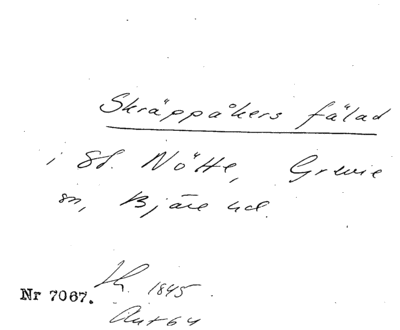 Skräppåkers fälad
i St. Nötte, Grevie
sn, Bjäre hd.
Lh. 1845
Nr 7067.
Akt 64